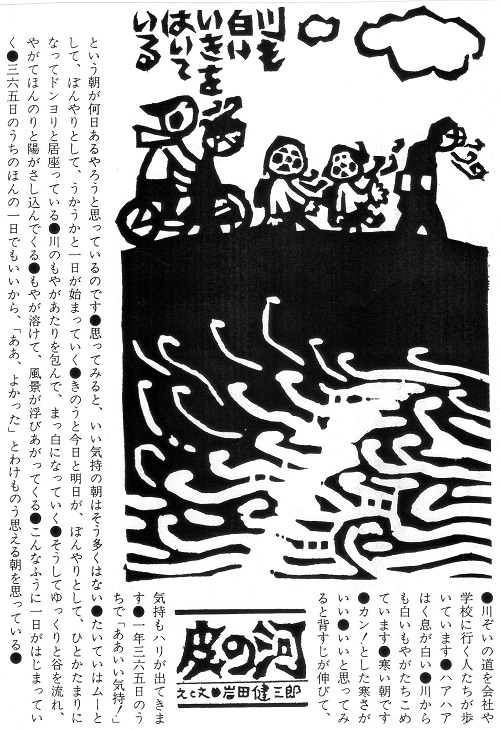 川も
白い
いきを
はいて
いる
皮の河
えと文●岩田健三郎
●川ぞいの道を会社や
学校に行く人たちが歩
いています●ハアハア
はく息が白い●川から
も白いもやがたちこめ
ています●寒い朝です
●カン！とした寒さが
いい●いいと思ってみ
ると背すじが伸びて、
気持もハリが出てきま
す●一年三六五日のう
ちで「ああいい気持！」
という朝が何日あるやろうと思っているのです●思ってみると、いい気持の朝はそう多くはない●たいていはムーと
して、ぼんやりとして、うかうかと一日が始まっていく●きのうと今日と明日が、ぼんやりとして、ひとかたまりに
なってドンヨリと居座っている●川のもやがあたりを包んで、まっ白になっていく●そうしてゆっくりと谷を流れ、
やがてほんのりと陽がさし込んでくる●もやが溶けて、風景が浮びあがってくる●こんなふうに一日がはじまってい
く●三六五日のうちのほんの一日でもいいから、「ああ、よかった」とわけものう思える朝を思っている●